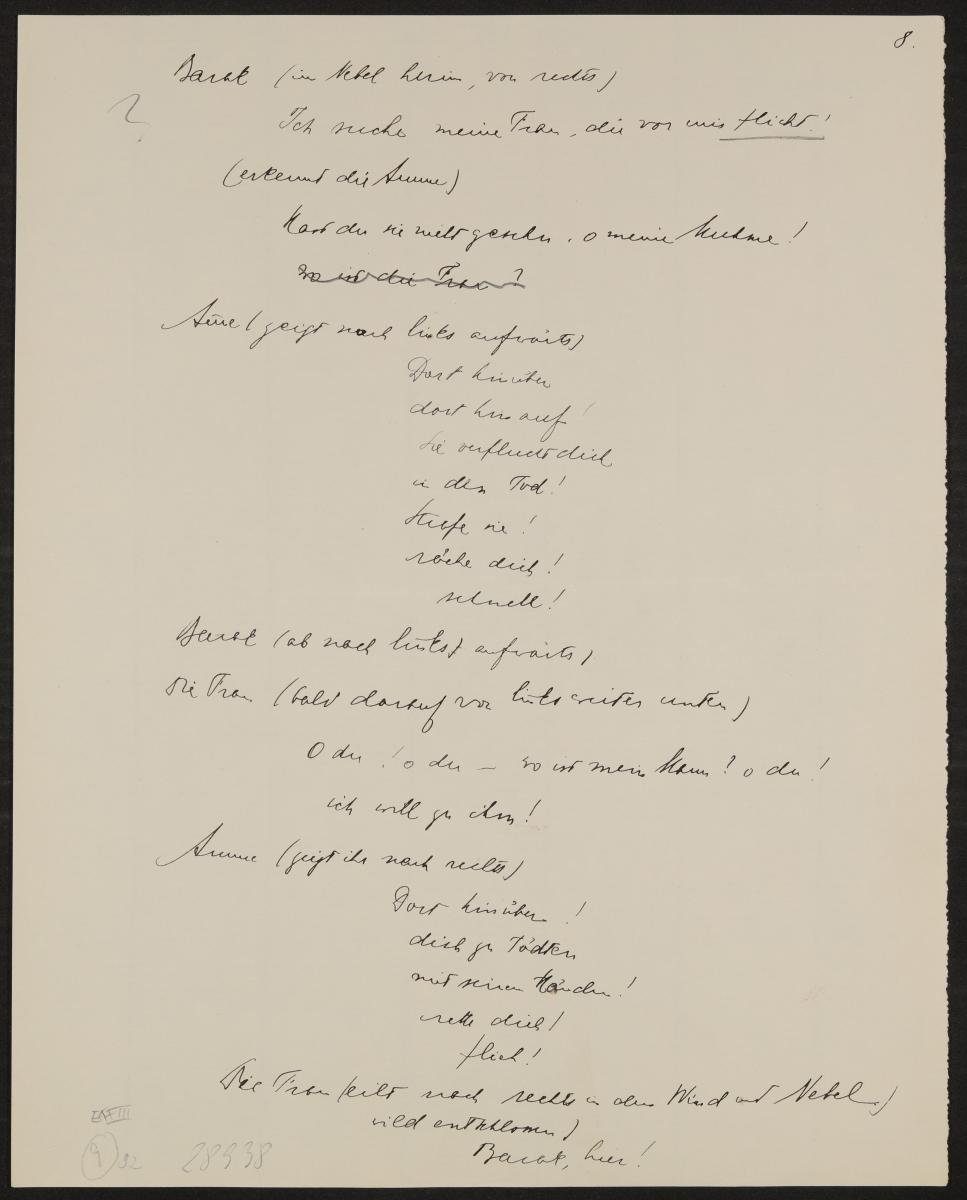 8.
Barak (im Nebel herein, von rechts)
?
Ich suche meine Frau, die vor mir flieht!
(erkennt die Amme)
Hast du sie nicht gesehn, o meine Muhme!
wo ist die Frau?
Amme (zeigt nach links aufwärts)
Dort hinüber
dort hinauf!
Sie verflucht dich
in den Tod!
Strafe sie!
räche dich!
schnell!
Barak (ab nach links aufwärts)
Die Frau (bald darauf von links weiter unten)
O du! o du – wo ist mein Mann? o du!
ich will zu ihm!
Amme (zeigt ihr nach rechts)
Dort hinüber!
dich zu tödten
mit seinen Händen!
rette dich!
flieh!
Die Frau (eilt nach rechts in den Wind und Nebel)
wild entschlossen)
Barak, hier!
III
92 28938